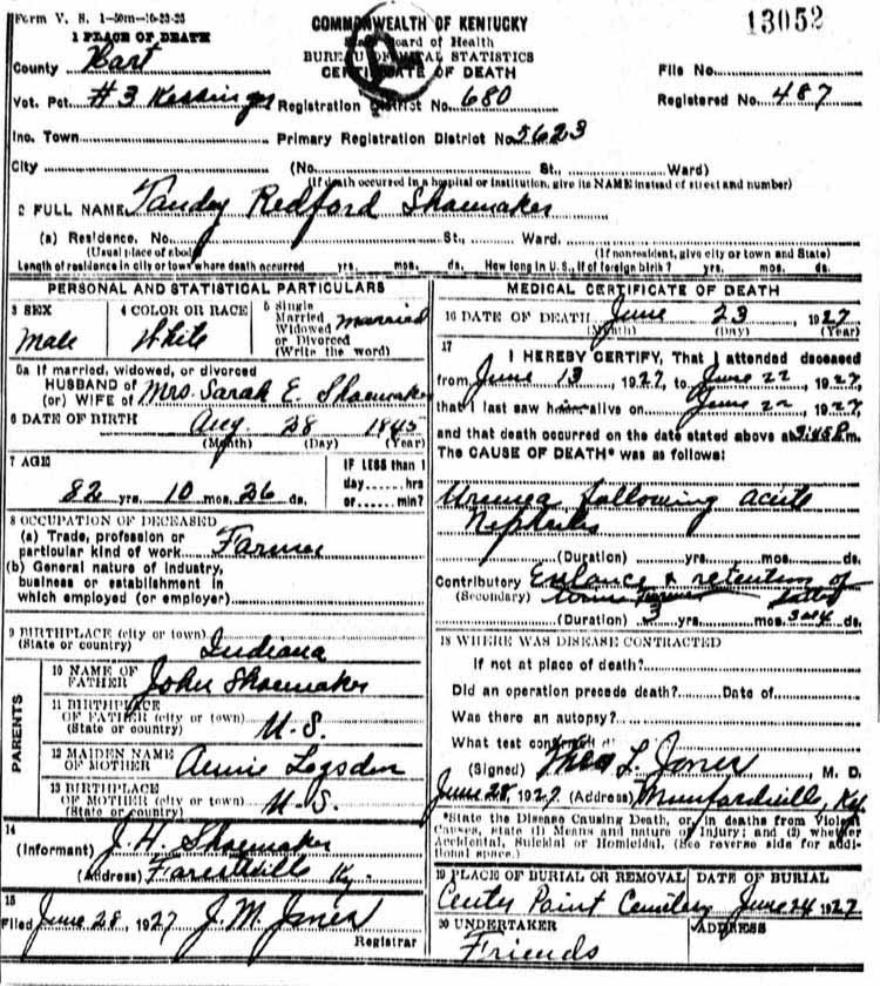 Form V. S. 1-50m-10-23-25
COMMONWEALTH OF KENTUCKY
13052
1 PLACE OF DEATH
State Board of Health
BUREAU OF VITAL STATISTICS
CERTIFICATE OF DEATH
County Hart
File No.
Vot. Pct. #3 Kessinger Registration District No. 680
Registered No. 487
Inc. Town Primary Registration District No. 5623
City (No. St., Ward)
(If death occurred in a hospital or institution, give its NAME instead of street and number)
2 FULL NAME Tandey Redford Shoemaker
(a) Residence. No. St., Ward.
(Usual place of abode) (If nonresident, give city or town and State)
Length of residence in city or town where death occurred yrs. mos. ds. How long in U. S., if of foreign birth? yrs. mos. ds.
PERSONAL AND STATISTICAL PARTICULARS
3 SEX
Male
4 COLOR OR RACE
White
5 Single
Married
Widowed
or Divorced
(Write the word)
married
5a If married, widowed, or divorced
HUSBAND of
(or) WIFE of Mrs. Sarah E. Shoemaker
6 DATE OF BIRTH Aug. 28 1845
(Month) (Day) (Year)
7 AGE
82 yrs. 10 mos. 26 ds.
IF LESS than 1
day......hrs
or......min?
8 OCCUPATION OF DECEASED
(a) Trade, profession or
particular kind of work Farmer
(b) General nature of industry,
business or establishment in
which employed (or employer)
9 BIRTHPLACE (city or town)
(State or country) Indiana
PARENTS
10 NAME OF
FATHER John Shoemaker
11 BIRTHPLACE
OF FATHER (city or town)
(State or country) U.S.
12 MAIDEN NAME
OF MOTHER Annie Logsden
13 BIRTHPLACE
OF MOTHER (city or town)
(State or country) U.S.
14
(Informant) J. H. Shoemaker
(Address) Ky.
15
Filed June 28, 1927 J. M. Jones
Registrar
MEDICAL CERTIFICATE OF DEATH
16 DATE OF DEATH June 23 1927
(Month) (Day) (Year)
17
I HEREBY CERTIFY, That I attended deceased
from June 13, 1927, to June 22, 1927,
that I last saw him alive on June 22, 1927,
and that death occurred on the date stated above at 3:45 P.m.
The CAUSE OF DEATH* was as follows:
Uremea following acute
Nephritis
(Duration) yrs. mos. ds.
Contributory & retention of
(Secondary)
(Duration) 3 yrs. mos. 3 or 4 ds.
18 WHERE WAS DISEASE CONTRACTED
If not at place of death?
Did an operation precede death? Date of
Was there an autopsy?
What test
(Signed) L. Jones, M. D.
June 28, 1927 (Address) Munfordville, Ky.
*State the Disease Causing Death, or, in deaths from Violent
Causes, state (1) Means and nature of Injury; and (2) whether
Accidental, Suicidal or Homicidal. (See reverse side for addi-
tional space.)
19 PLACE OF BURIAL OR REMOVAL
Center Point Cemetery
DATE OF BURIAL
June 24 1927
20 UNDERTAKER
Friends
ADDRESS